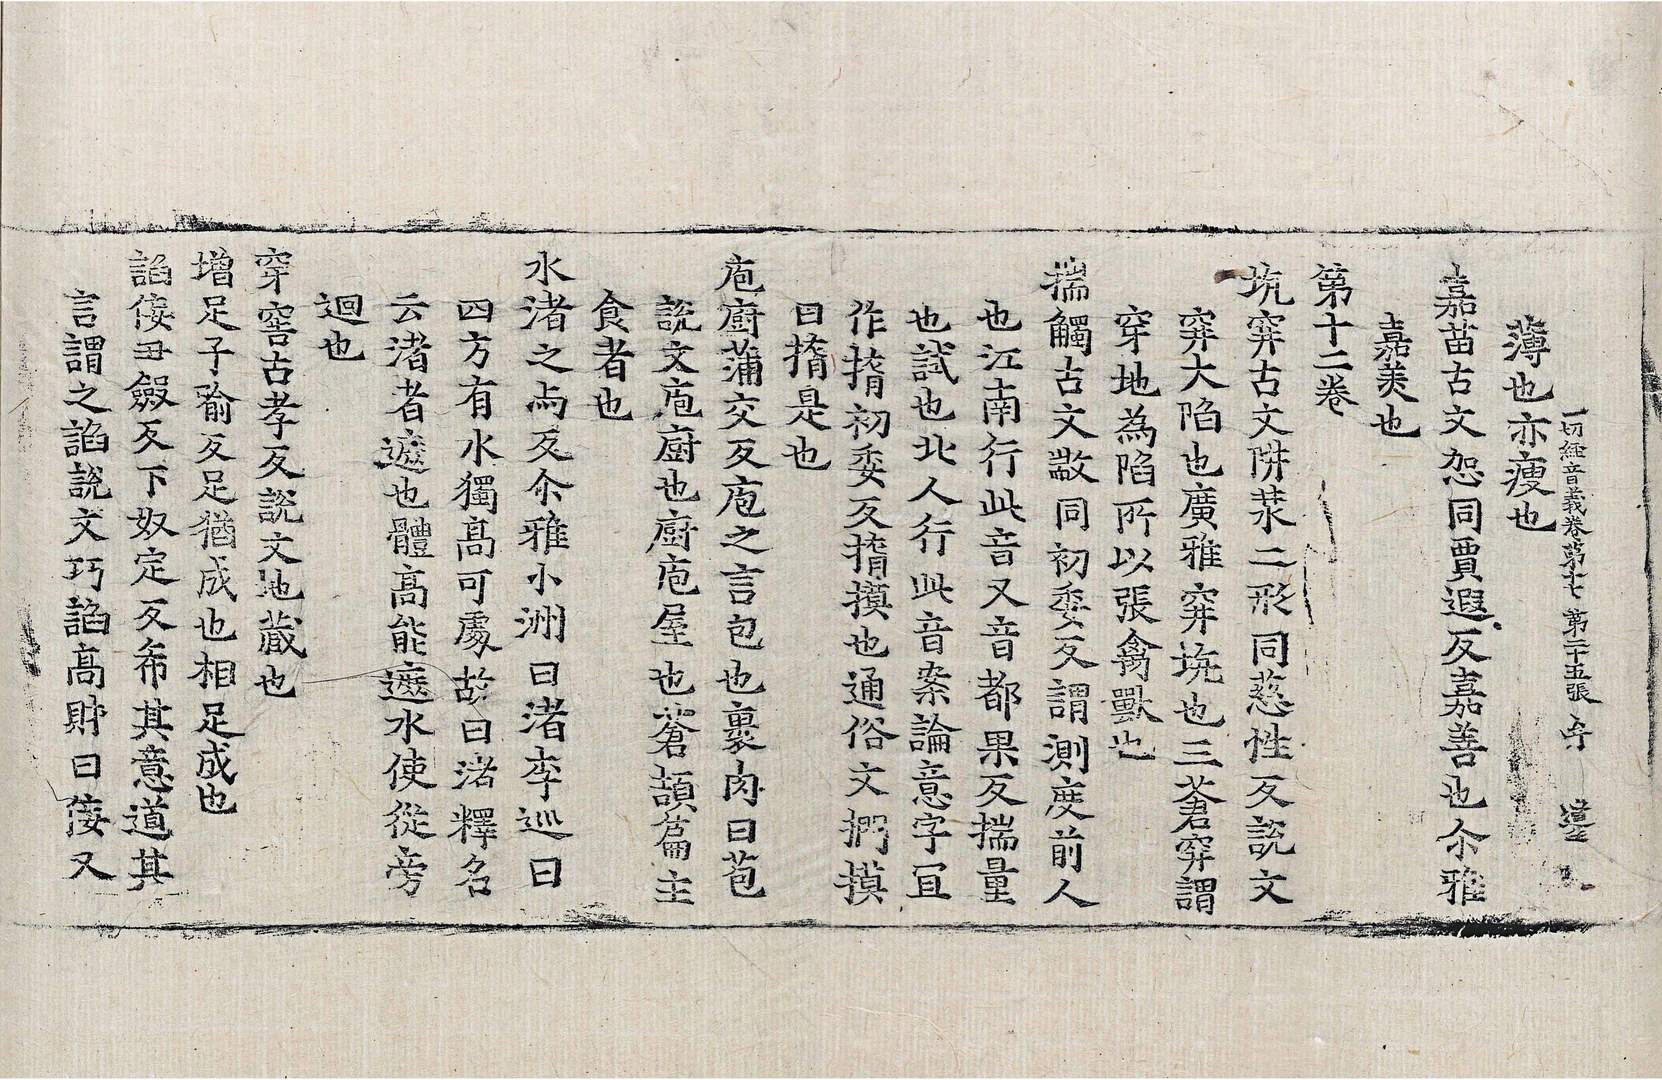 一切經音義卷第十七　第二十五張
薄也亦瘦也
嘉苗古文恕同賈遐反嘉善也尒雅
嘉美也
第十二卷
坑穽古文阱汬二形同慈性反說文
穽大陷也廣雅穽坑也三蒼穽謂
穿地為陷所以張禽獸也
揣觸古文敳同初委反謂測度前人
也江南行此音又音都果反揣量
也試也北人行此音案論意字冝
作揹初委反揹摸也通俗文捫摸
曰揹是也
庖廚蒲交反庖之言包也裹肉曰苞
說文庖廚也廚庖屋也蒼頡篇主
食者也
水渚之与反尒雅小洲曰渚李巡曰
四方有水獨高可處故曰渚釋名
云渚者遮也體高能遮水使從旁
迴也
穿窖古孝反說文地藏也
增足子喻反足猶成也相足成也
諂佞丑斂反下奴定反希其意道其
言謂之諂說文巧諂高財曰佞又